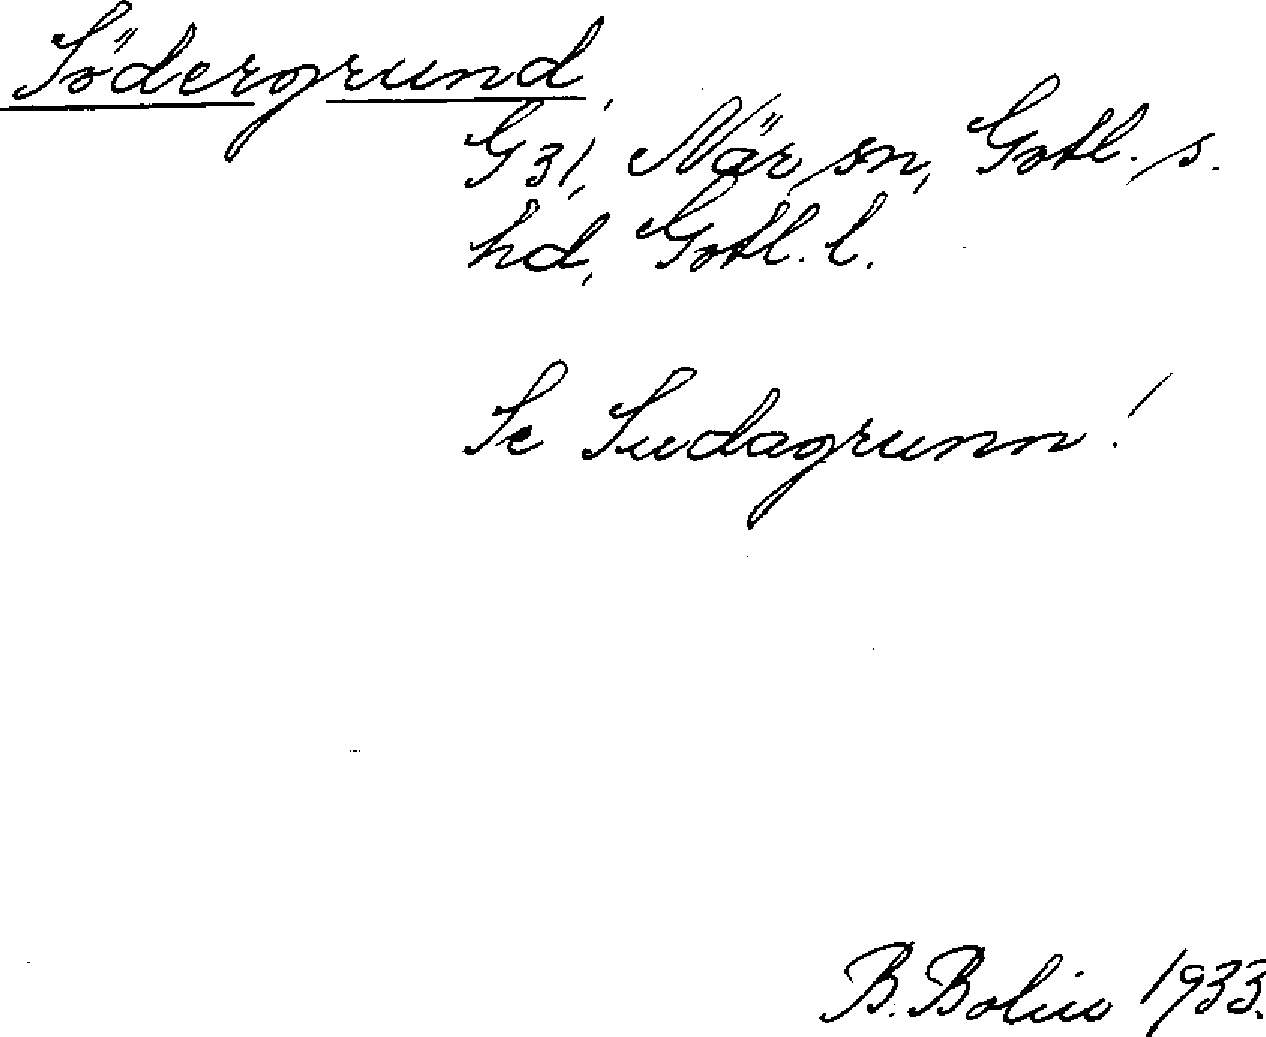 Södergrund,
G 31, När sn, Gotl. s.
hd, Gotl. l.
Se Sudagrunn!
B. Bolin 1933.